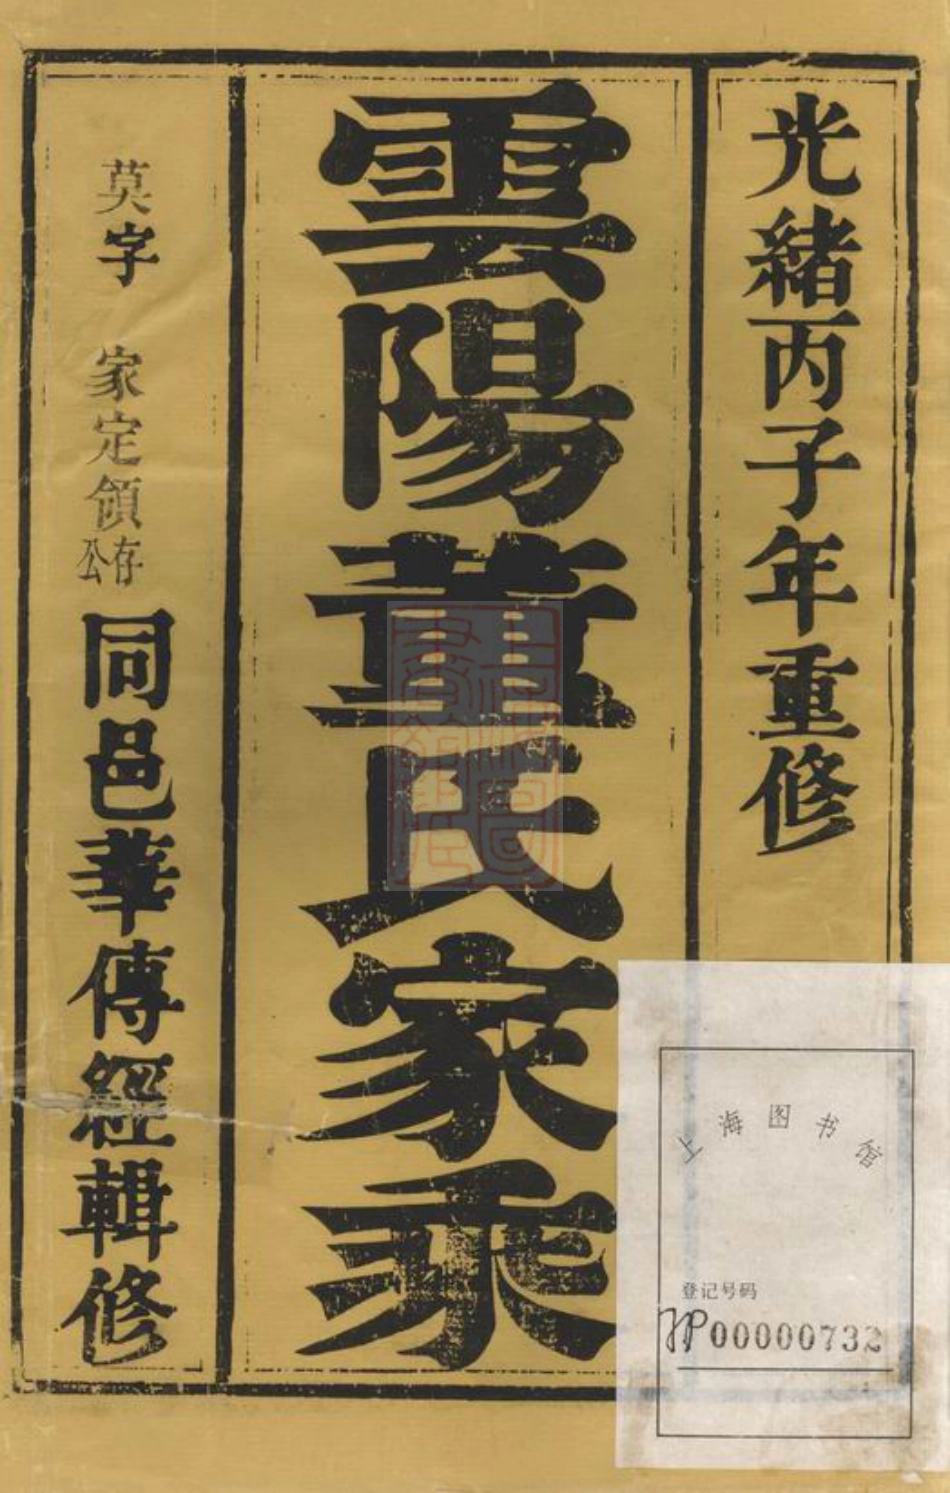 光緒丙子年重修
雲陽董氏家乘
莫字 家定領存公
同邑華傳經輯修
上海图书馆
登记号码
00000732